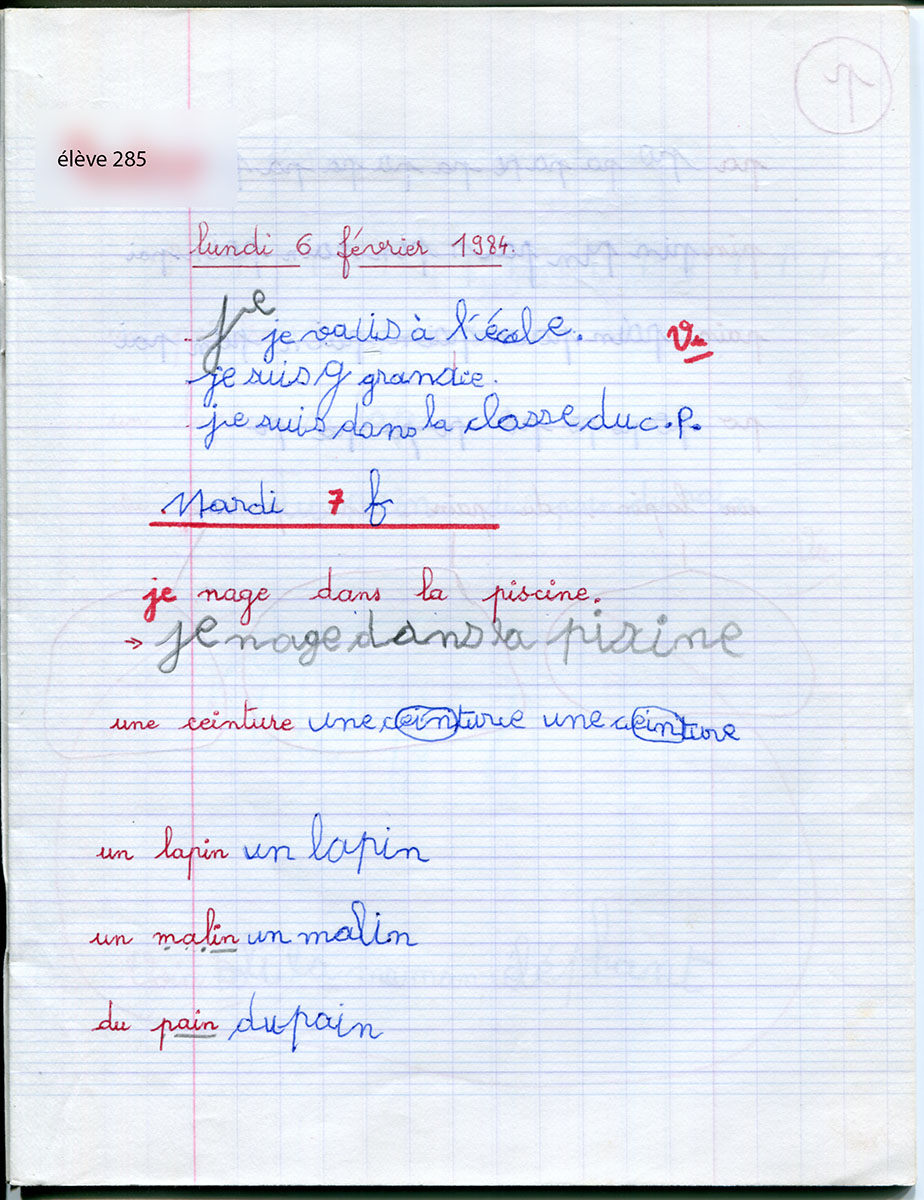 élève 285
lundi 6 février 1984.
je
je vais à l'école. Vu
je suis g grandie.
je suis dans la classe du c.p.
Mardi 7 f
je nage dans la piscine.
→ je nage dans la pisine
une ceinture une ceinturee une ceinture
un lapin un lapin
un malin un malin
du pain du pain